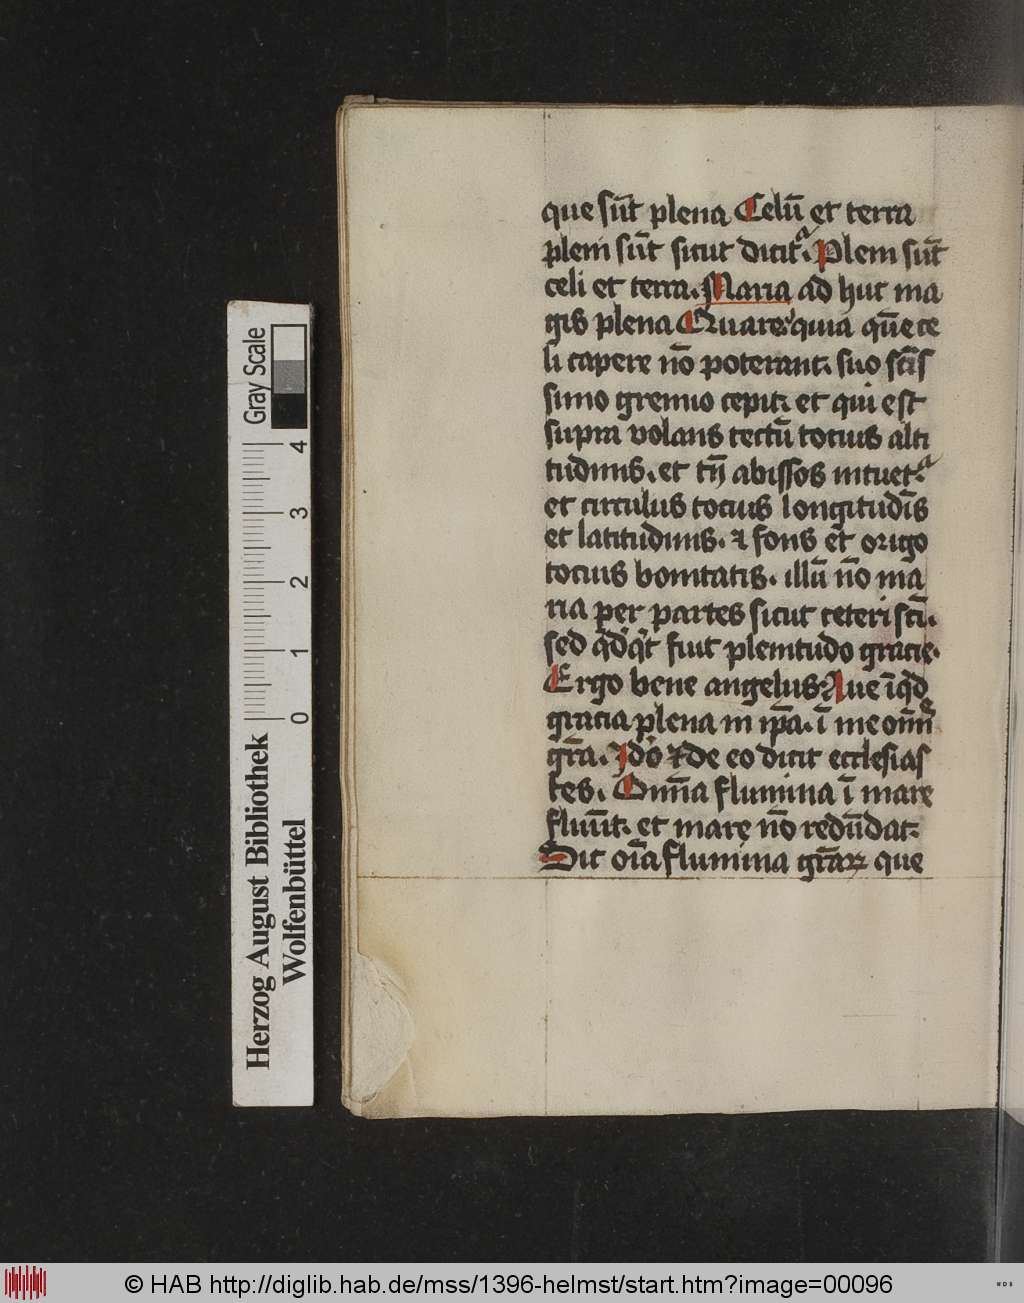 que sūt plena Celū et terra
pleni sūt sicut dicitᷣ. Pleni sūt
celi et terra. Maria ad huc ma
gis plena Quare quia quē ce
li capere nō poterant. suo scīs
simo gremio cepit. et qui est
supra volans tectū tocius alti
tudinis. et tn̄ abissos intuetᷣ.
et circulus tocius longitudīs
et latitudinis. ⁊ fons et origo
tocius bonitatis. illū nō ma
ria per partes sicut ceteri scī.
sed fuit plenitudo gracie.
Ergo bene angelus. Aue
gracia plena in ip̄a. ī me om̄is
gr̄a. Idō ⁊ de eo dicit ecclesias
tes. Omīa flumina ī mare
fluūt. et mare nō redūdat.
Sic oīa flumina gr̄aꝝ que
Gray Scale
0 1 2 3 4
Herzog August Bibliothek
Wolfenbüttel
© HAB http://diglib.hab.de/mss/1396-helmst/start.htm?image=00096